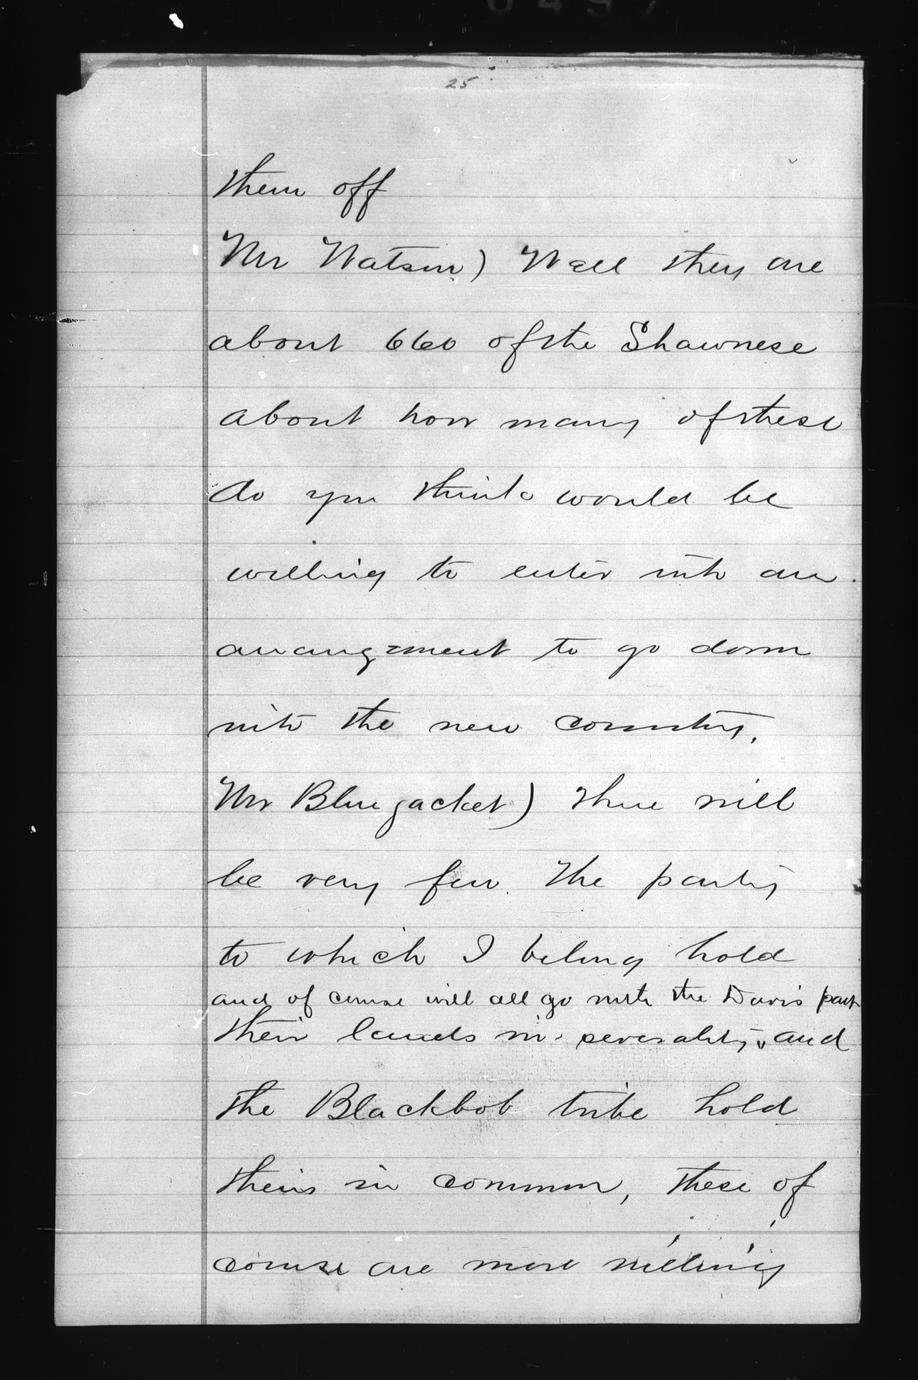 25
them off
Mr Watson) Well they are
about 660 of the Shawnese
about how many of these
do you think would be
willing to enter into an
arrangement to go down
into the new country.
Mr Bluejacket) There will
be very few. The party
to which I belong hold
and of course will all go with the Davis part
their lands in severalty, and
the Blackbob tribe hold
theirs in common, these of
course are more willing